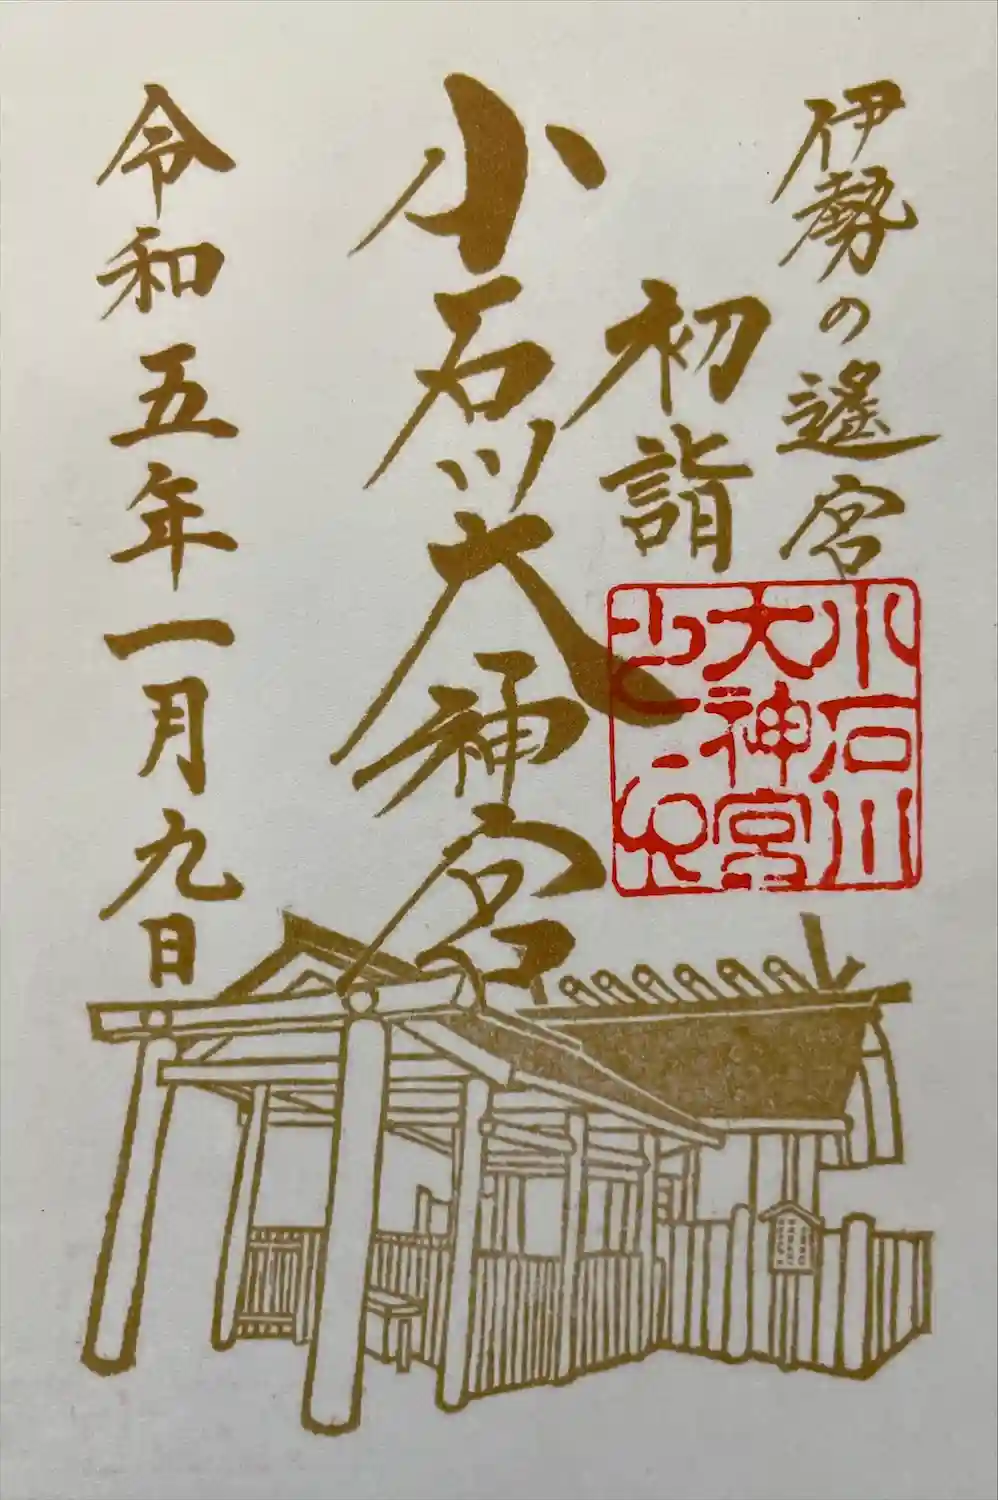 伊勢の遥宮
初詣
小石川大神宮
令和五年一月九日
小石川
大神宮